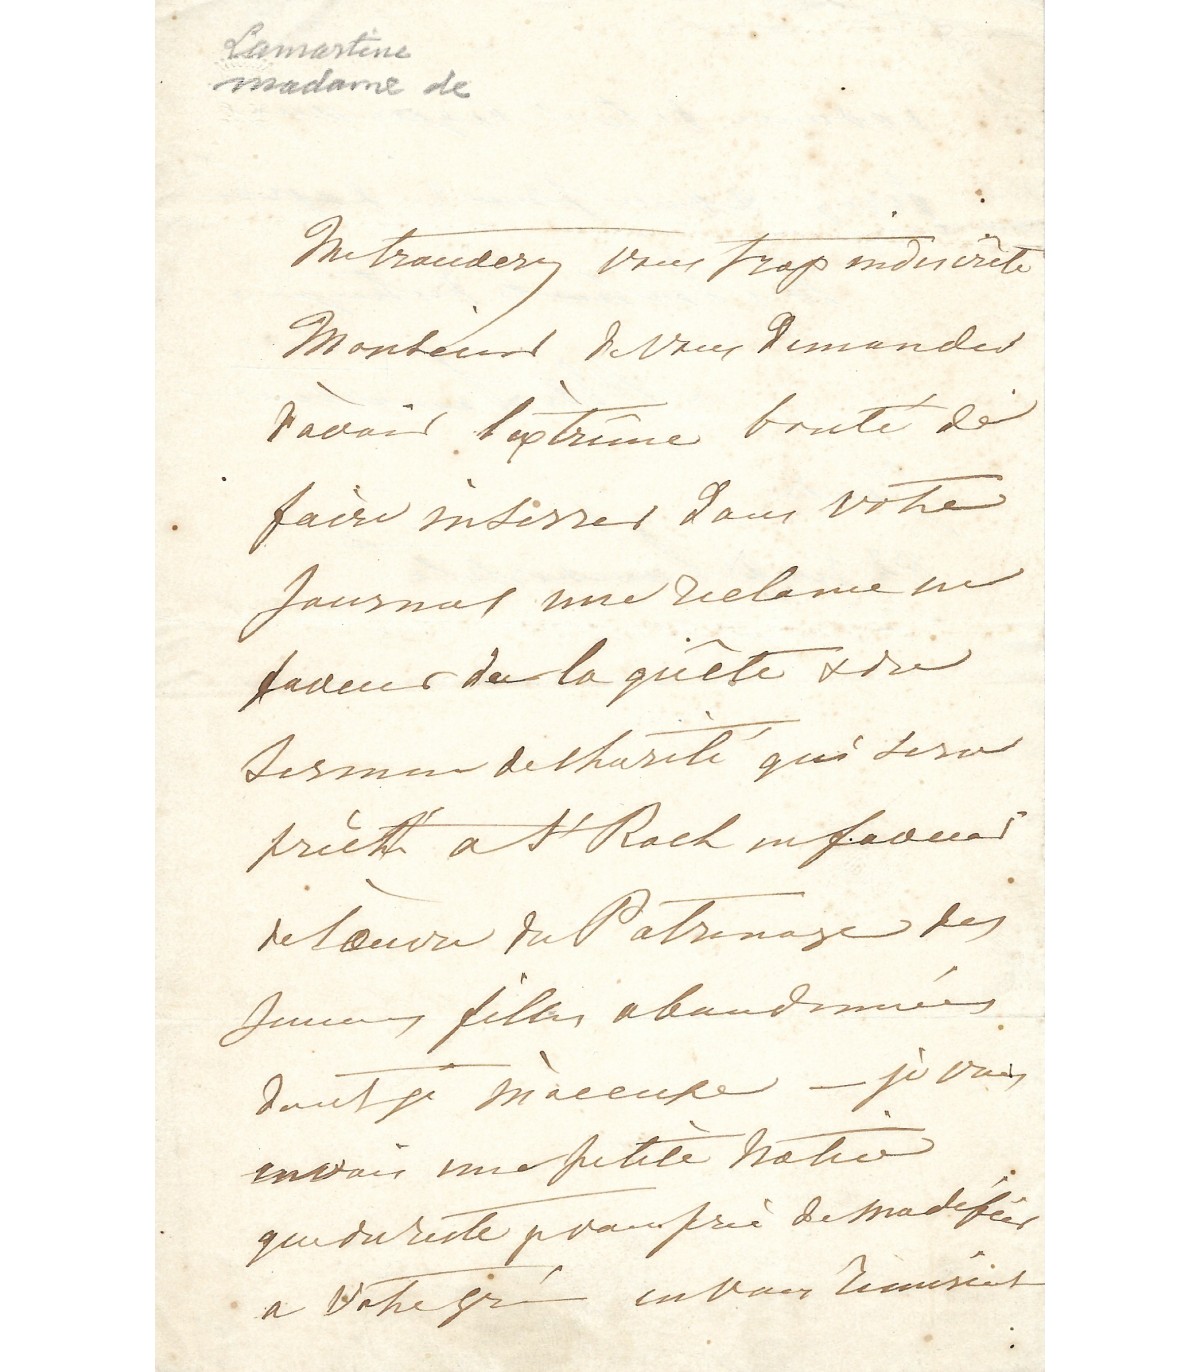 Lamartine
madame de
Me trouverez vous trop indiscrète
Monsieur de vous demander
d'avoir l'extrême bonté de
faire inserrer dans votre
Journal une reclame en
faveur de la quête & du
sermon de charité qui sera
prêché a St Roch en faveur
de l'œuvre du Patronage des
jeunes filles abandonnées
dont je m'occupe — je vous
envoie une petite notice
que du reste je vous prie de modifier
a votre gré en vous remerciant